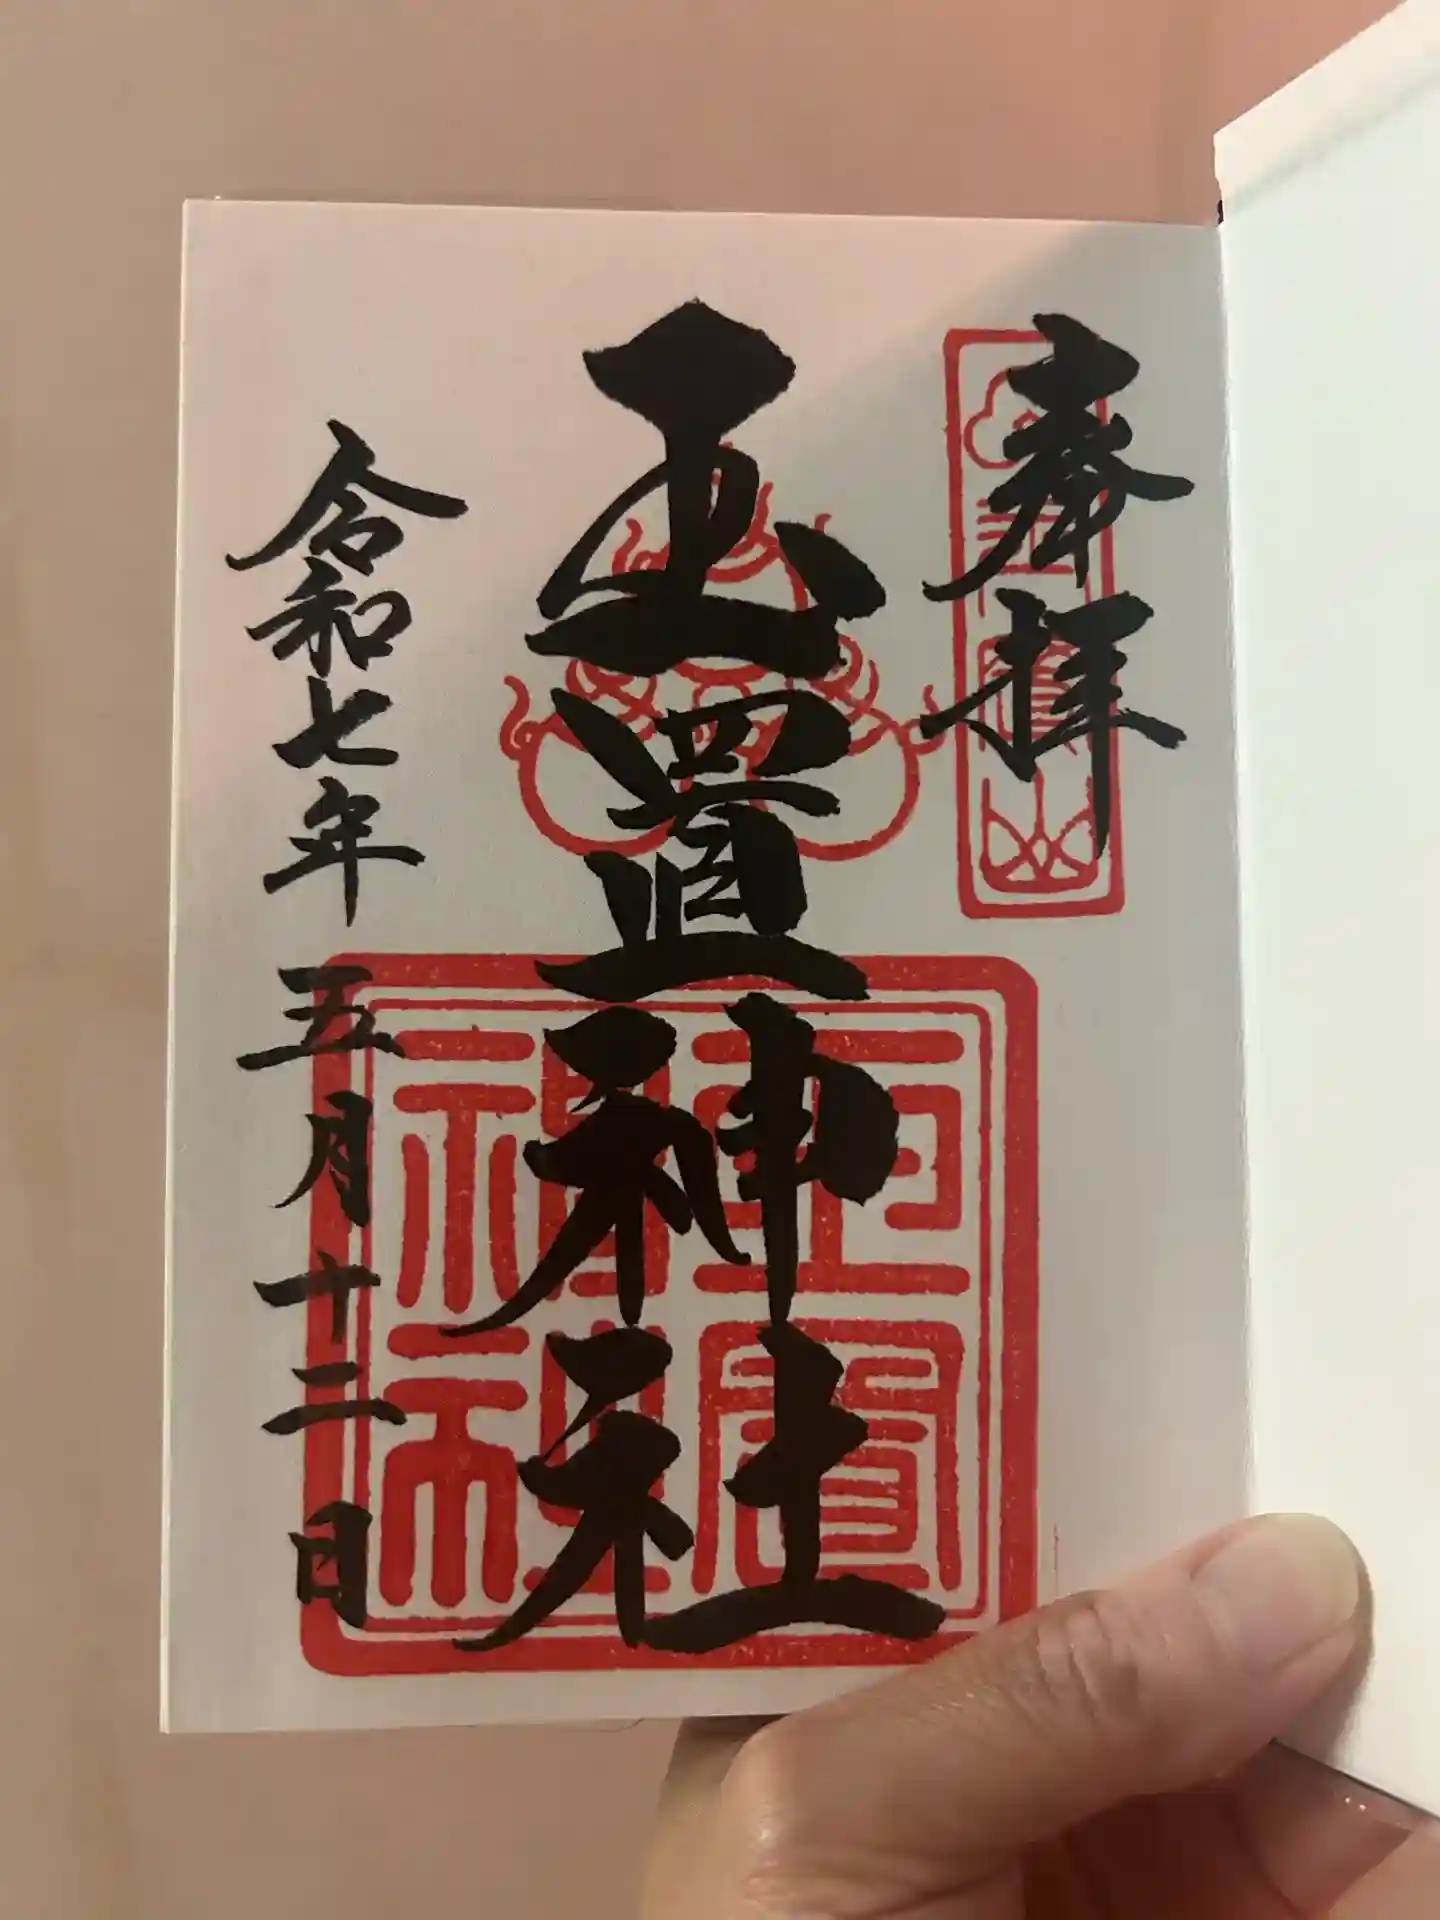 奉拝
玉置神社
令和七年五月十二日
玉置
神社